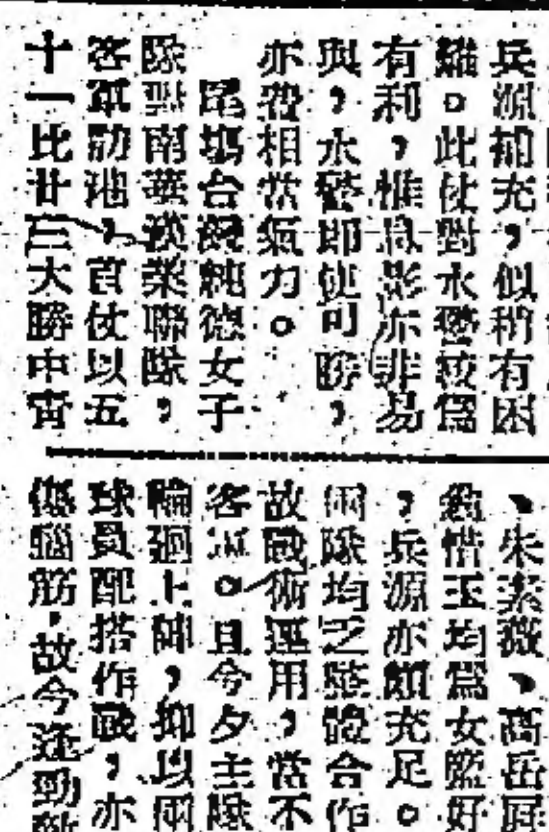 兵源補充，似稍有困
難。此仗對水警較爲
有利，惟良影亦非易
與，水警即使可勝，
亦費相當氣力。
尾塲台純德女子
隊對南華漢業聯隊，
客軍勁旅，首仗以五
十一比廿三大勝中青
、朱素薇、高岳屏
惜玉均爲女籃好
，兵源亦頗充足。
兩隊均乏整體合作
故戰術運用，當不
客。且今夕主隊
輪迴上陣，抑以兩
球員配搭作戰，亦
傷腦筋，故今逢勁敵